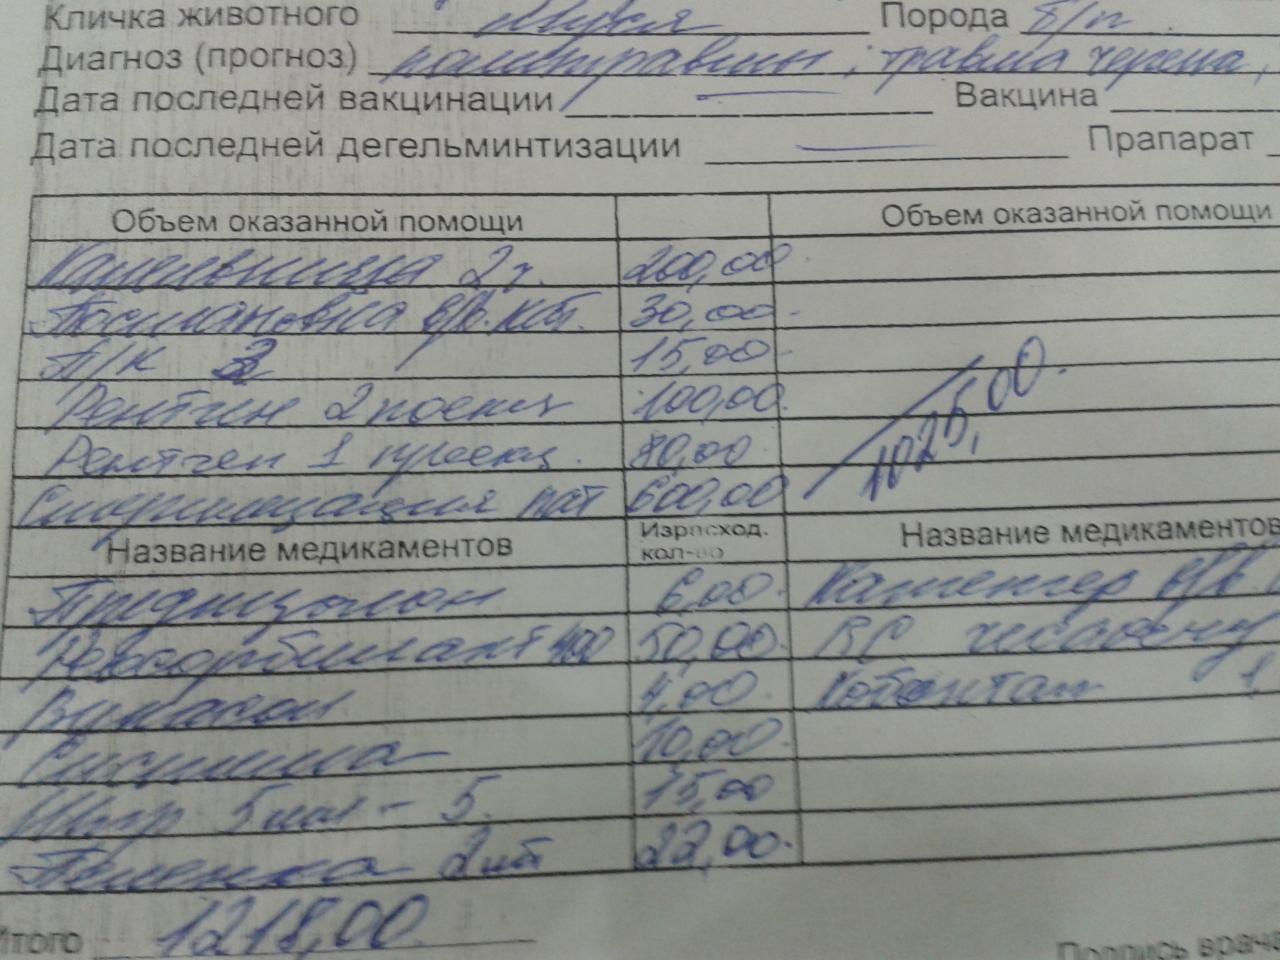 Кличка животного Муся Порода б/п
Диагноз (прогноз) политравмы; травма черепа,
Дата последней вакцинации Вакцина
Дата последней дегельминтизации Прапарат
Объем оказанной помощи Объем оказанной помощи
Капельница 2ч. 200,00
Постановка в/в. кат. 30,00
П/к 3 15,00
Рентген 2 проекц 100,00
Рентген 1 проекц. 80,00
1025,00
600,00
Название медикаментов Израсход. кол-во Название медикаментов
Преднизолон 6,00 Катетер в/в.
Реосорбилакт 400 50,00
Викасол 4,00 1
Система 10,00
Шпр 5мл - 5. 15,00
Пеленка 2шт 22,00
Итого 1218,00
Подпись врача